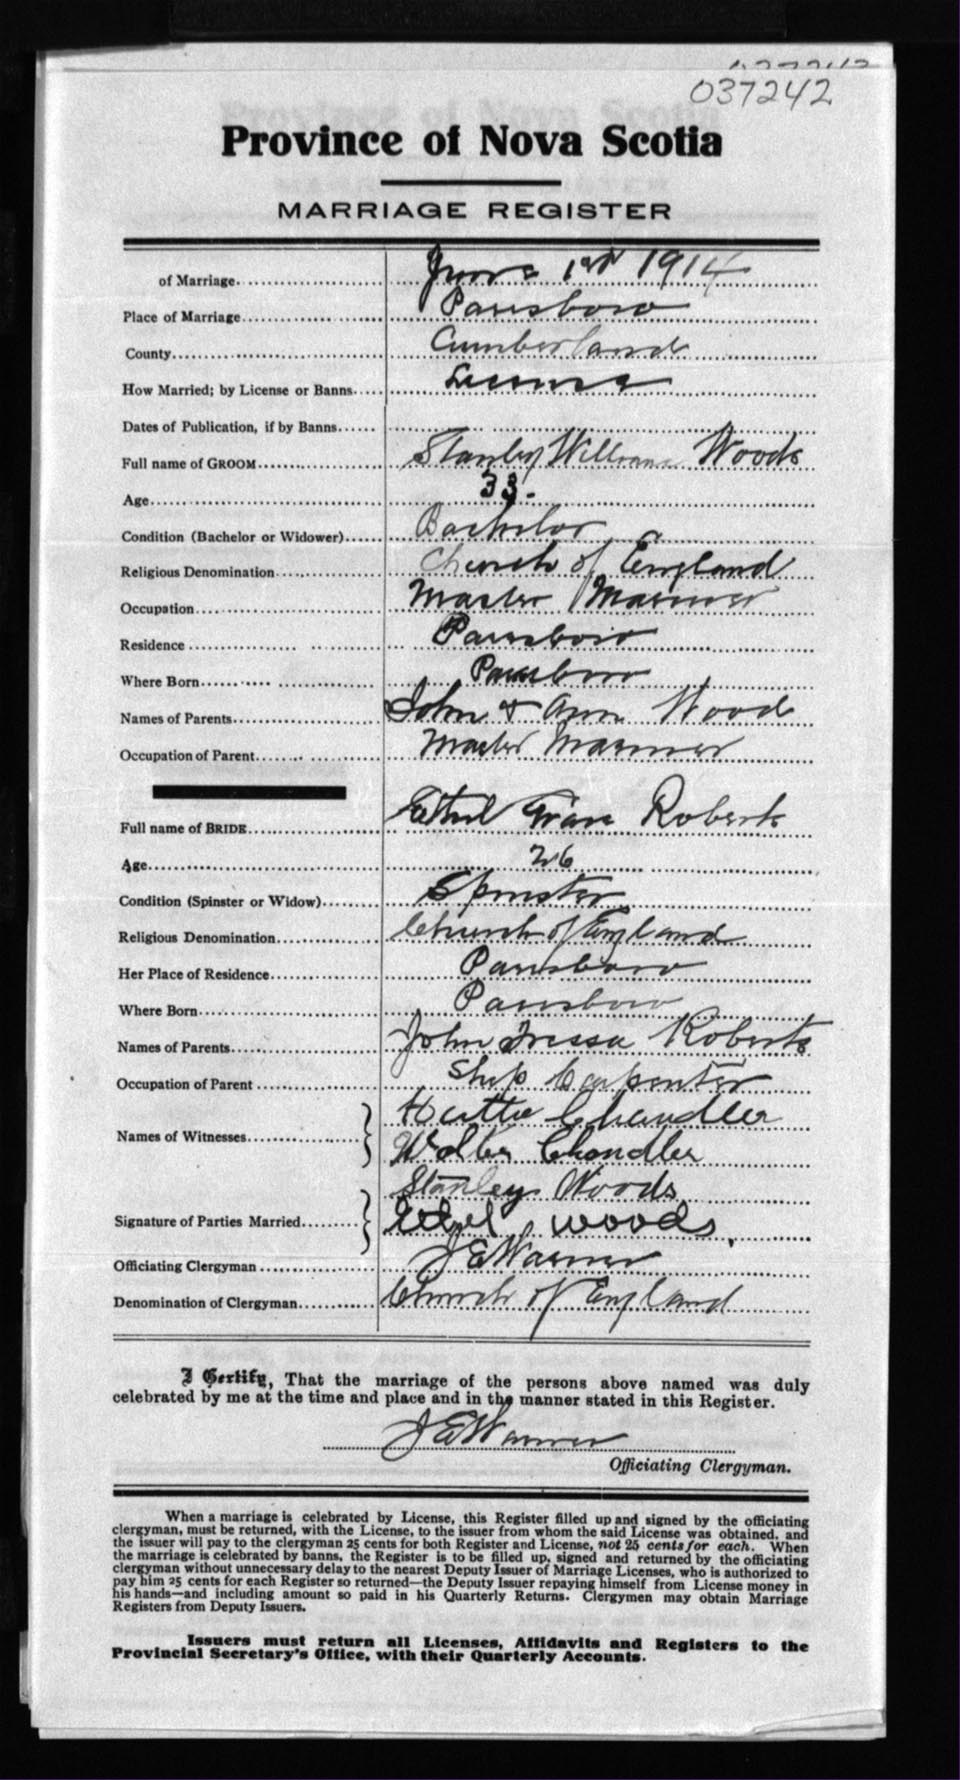 037242
Province of Nova Scotia
MARRIAGE REGISTER
of Marriage June 1st 1914
Place of Marriage Parrsboro
County Cumberland
How Married; by License or Banns License
Dates of Publication, if by Banns
Full name of GROOM Stanley William Woods
Age 33.
Condition (Bachelor or Widower) Bachelor
Religious Denomination Church of England
Occupation Master Mariner
Residence Parrsboro
Where Born Parrsboro
Names of Parents John & Ann Woods
Occupation of Parent Master Mariner
Full name of BRIDE Ethel Roberts
Age 26
Condition (Spinster or Widow) Spinster
Religious Denomination Church of England
Her Place of Residence Parrsboro
Where Born Parrsboro
Names of Parents John Tressa Roberts
Occupation of Parent Ship Carpenter
Hattie Chandler
Names of Witnesses
Walter Chandler
Stanley Woods
Signature of Parties Married
Ethel Woods.
Officiating Clergyman J E Warner
Denomination of Clergyman Church of England
I Certify, That the marriage of the persons above named was duly
celebrated by me at the time and place and in the manner stated in this Register.
J E Warner
Officiating Clergyman.
When a marriage is celebrated by License, this Register filled up and signed by the officiating
clergyman, must be returned, with the License, to the issuer from whom the said License was obtained, and
the issuer will pay to the clergyman 25 cents for both Register and License, not 25 cents for each. When
the marriage is celebrated by banns, the Register is to be filled up, signed and returned by the officiating
clergyman without unnecessary delay to the nearest Deputy Issuer of Marriage Licenses, who is authorized to
pay him 25 cents for each Register so returned—the Deputy Issuer repaying himself from License money in
his hands—and including amount so paid in his Quarterly Returns. Clergymen may obtain Marriage
Registers from Deputy Issuers.
Issuers must return all Licenses, Affidavits and Registers to the
Provincial Secretary's Office, with their Quarterly Accounts.